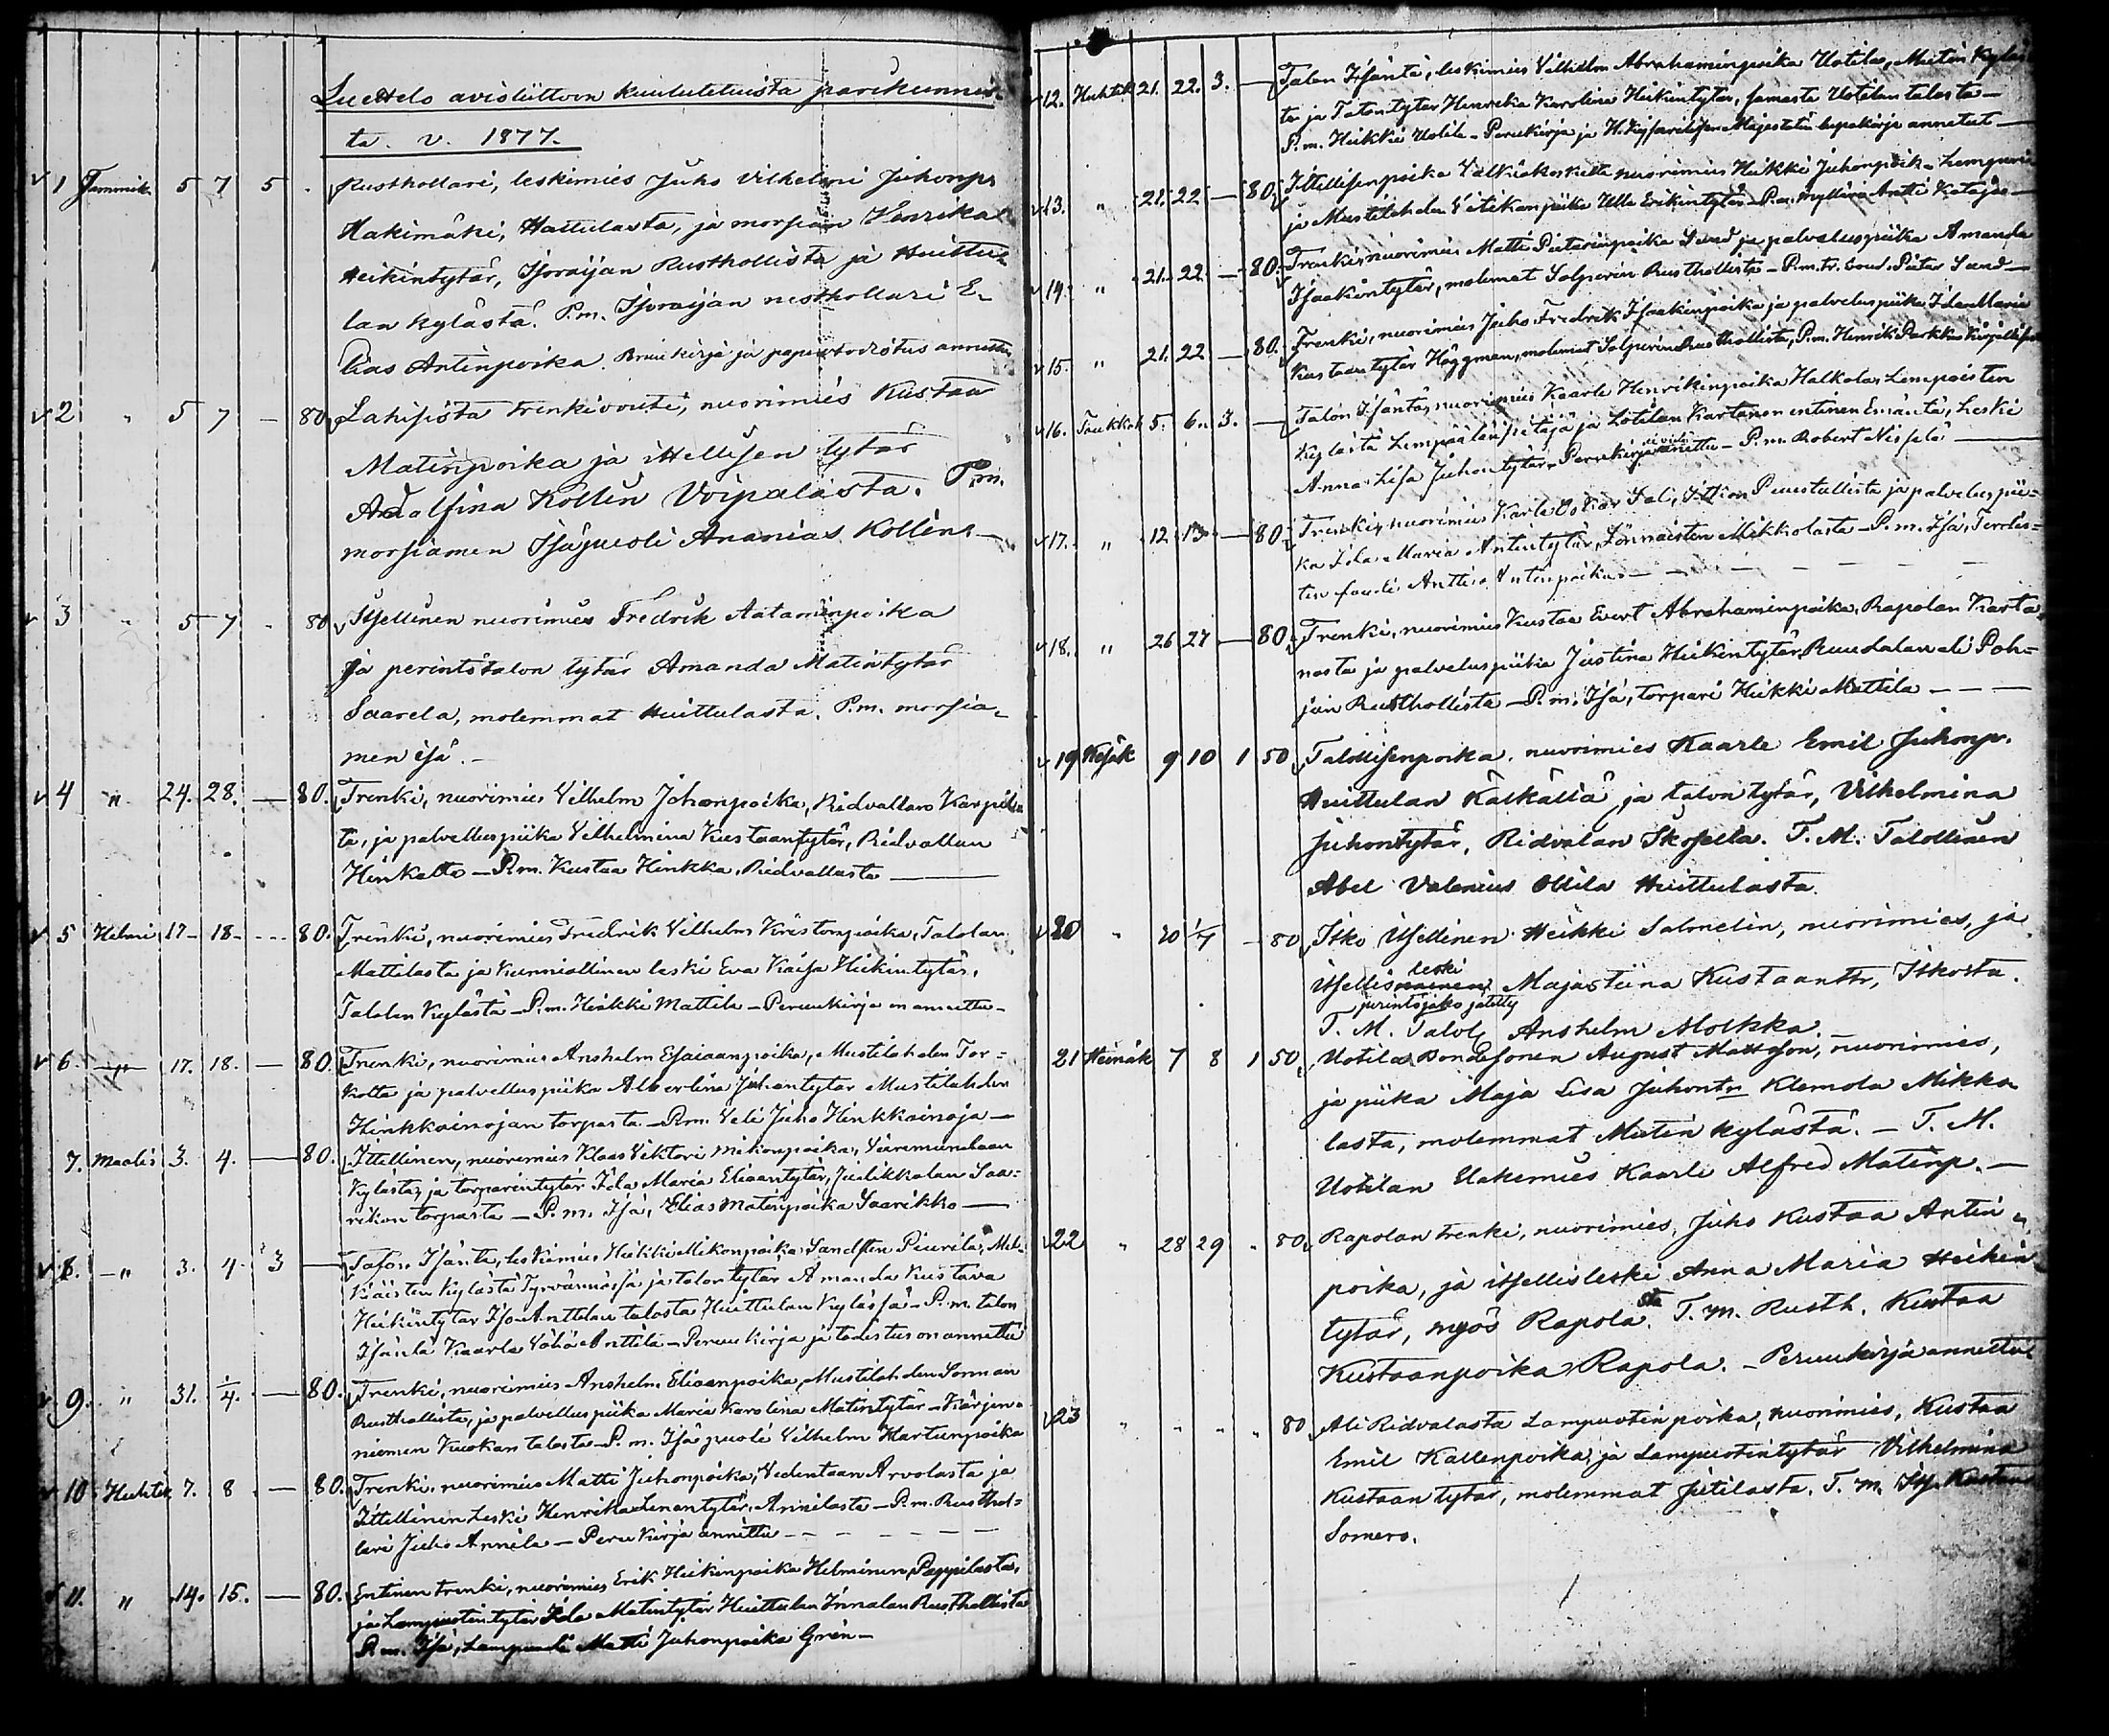 Luettelo avioliittoon kuulutetuista parikunnis-
ta v. 1877.
1 Tammik. 5 7 5 - Rusthollari, leskimies Juho Vilhelmi Juhonp.
Hakimäki, Huittulasta, ja morsian Henrika
Heikintytär, Isoraijan Rusthollista ja Huittu-
lan kylästä. P.m. Isoraijan rusthollari E-
lias Antinpoika. Perukirja ja annettu
2 " 5 7 - 80 Lahisista trenkivouti, nuorimies Kustaa
Matinpoika ja ittellisen tytär
Adalfina Kollin Voipalasta. P.m.
morsiamen Isäpuoli Ananias Kollin. —
3 " 5 7 - 80 Itsellinen nuorimies Fredrik Aataminpoika
ja perintötalon tytär Amanda Matintytär
Saarela, molemmat Huittulasta. P.m. morsia-
men isä. —
4 " 24. 28. — 80. Trenki, nuorimies Vilhelm Johanpoika, Ridvallan
ta, ja palvelluspiika Vilhelmina Kustaantytär, Ridvallan
Hinkalta — P.m. Kustaa Hinkka, Ridvallasta —
5 Helmi 17- 18- — 80. Trenki, nuorimies Fredrik Vilhelm Kristonpoika, Talolan
Mattilasta ja kunniallinen leski Eva Kaisa Heikintytär,
Talolan Kylästä — P.m. Heikki Mattila — Perunkirja on annettu -
6. —"— 17. 18. — 80. Trenki, nuorimies Anshelm Esaiaanpoika, Mustilahden Tor-
kolta ja palvelluspiika Albertina Juhantytär Mustilahden
Hinkkainojan torpasta — P.m. Veli Juho Hinkkainoja —
7. Maalis 3. 4. — 80. Ittellinen, nuorimies Klaas Viktori Mikonpoika,
Kylästä, ja torparintytär Ida Maria Eliaantytär, Juutikkalan Saa-
rikon torpasta — P.m. Isä, Elias Matinpoika Saarikko —
8. —" 3. 4. 3 — Talon Isäntä, Leskimies Heikki Mikonpoika Sandsten
Kylästä Tyrvännössä ja talon tytär Amanda Kustava
Heikintytär Iso-Anttilan talosta Huittulan Kylässä — P.m. talon
Isäntä Kaarle Vähä-Anttila — Perunkirja ja todistus on annettu
9. " 31. 1/4. — 80. Trenki, nuorimies Anshelm Eliaanpoika, Mustilahden Sonnan
Rusthollista, ja palvelluspiika Maria Karolina Matintytär Kärjen-
niemen Kuokan talosta — P.m. Isäpuoli Vilhelm Martinpoika
10. Huhtik. 7. 8 — 80. Trenki, nuorimies Matti Juhonpoika, Vedentaan Arvolasta ja
Ittellinen Leski Henrika Annilasta — P.m. Rusthol-
lari Juho Annila — Perukirja annettu —
11. " 14. 15. — 80. Entinen trenki, nuorimies Erik Heikinpoika Helminen, Pappilasta,
ja Lampuotin tytär Ida Matintytär Huittulan Rusthollista
P.m. Isä, Lampuoti Matti Juhonpoika Grén —
12. Huhtik 21. 22. 3. — Talon Isäntä, leskimies Vilhelm Abrahaminpoika Uotila, Mietin Kyläs-
tä ja Talontytär Henrika Karolina Heikintytär, samasta Uotilan talosta —
P.m. Heikki Uotila — Perukirja ja H. Keisarillisen Majestetin lupakirja annetut —
13. " 21. 22 — 80 Ittellisenpoika Valkiakoskelta nuorimies Heikki Juhonpoik.
ja Mustilahden piika Ulla Erikintytär — P.m. Mylläri Antti Kataja —
14. " 21. 22 — 80. Trenki, nuorimies Matti Pietarinpoika Sund ja palveluspiika Amanda
Isaakintytär, molemmat Salperin Rusthollista — P.m. Pietar Sund —
15. " 21. 22 — 80. Trenki, nuorimies Juho Fredrik Isaakinpoika ja palveluspiika Ida Maria
Kustaantytär Häggman, molemmat Salperin Rusthollista, P.m. Henrik
16. Toukok 5. 6. 3. — Talon Isäntä, nuorimies Kaarle Henrikinpoika Halkola, Lempoisten
Kylästä Lempäälän pitäjä ja Lotilan Kartanon entinen Emäntä, Leski
Anna Lisa Juhontytär — Perukirja annettu — P.m. Robert
17. " 12 13 — 80 Trenki, nuorimies Karle Oskar Sal, Ittian Puustellista ja palveluspii-
ka Ida Maria Antintytär, Lönnäisten Mikkolasta — P.m. Isä,
Antti Antinpoika —
18. " 26 27 — 80 Trenki, nuorimies Kustaa Evert Abrahaminpoika, Rapolan Karta-
nosta ja palveluspiika Justina Heikintytär, Ali Poh-
jan Rusthollista — P.m. Isä, torpari Heikki Mattila —
19 Kesäk 9 10 1 50 Talollisenpoika, nuorimies Kaarle Emil Juhonp.
Huittulan Kälkältä, ja talon tytär, Vilhelmina
Juhontytär, Ridvalan Skosella. T.M. Talollinen
Abel Valenius Ollila Huittulasta.
20 " 30 1/7 — 80 Itko Itsellinen Heikki Salmelin, nuorimies, ja
itsellis leski Majastiina Kustaanttr, Itkosta.
perintöjako jätetty
T. M. Talol. Anshelm Molkka. —
21 Heinäk 7 8 1 50 Uotila Bondesonen August Mattsson, nuorimies,
ja piika Maja Lisa Juhontr Klemola Mikko-
lasta, molemmat Mietin kylästä. — T. M.
Uotilan Elakemies Kaarli Alfred Matinp. —
22 " 28 29 " 80 Rapolan trenki, nuorimies, Juho Kustaa Antin
poika, ja itsellisleski Anna Maria Heikin-
tytär, myös Rapolasta. T.m. Rusth. Kustaa
Kustaanpoika Rapola. — Perunkirja annettu
23 " " " " 80 Ali Ridvalasta Lampuotin poika, nuorimies, Kustaa
Emil Kallenpoika, ja Lampuotintytär Vilhelmina
Kustaantytär, molemmat Jutilasta. T. m. Its. Kustaa
Somero.